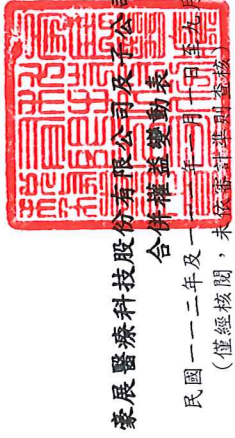 豪展醫療科技股份有限公司及子公司
合併權益變動表
民國一一二年及一一一年一月一日至九月
(僅經核閱,未依審計準則查核)